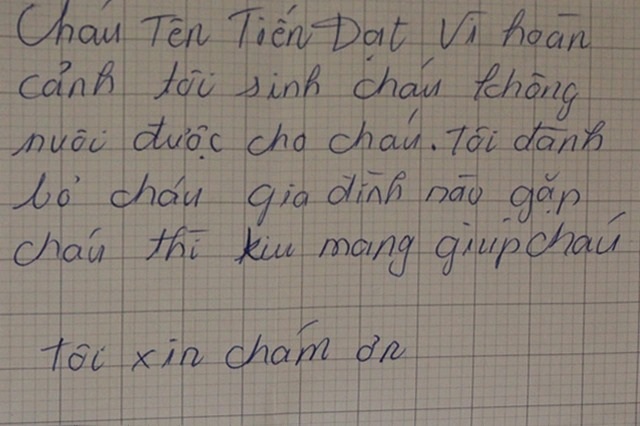 Cháu Tên Tiến Đạt Vì hoàn
cảnh tôi sinh cháu không
nuôi được cho cháu. Tôi đành
bỏ cháu gia đình nào gặp
cháu thì kiu mang giúp cháu
tôi xin chấm ơn